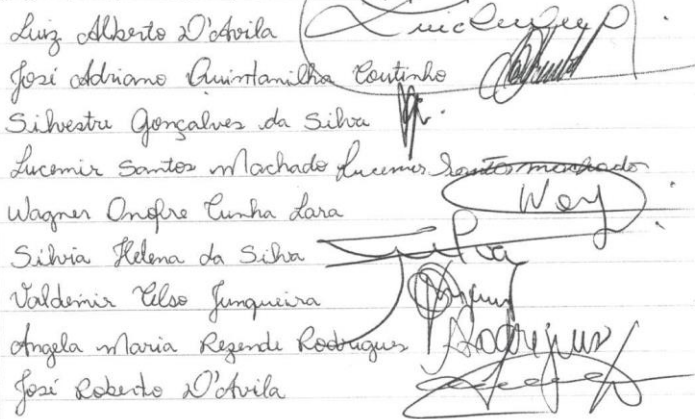 Luiz Alberto D'Avila
José Adriano Quintanilha Coutinho
Silvestre Gonçalves da Silva
Lucemir Santos Machado Lucemir Santos machado
Wagner Onofre Cunha Lara
Silvia Helena da Silva
Valdemir Celso Junqueira
Angela Maria Rezende Rodrigues Rodrigues
José Roberto D'Avila